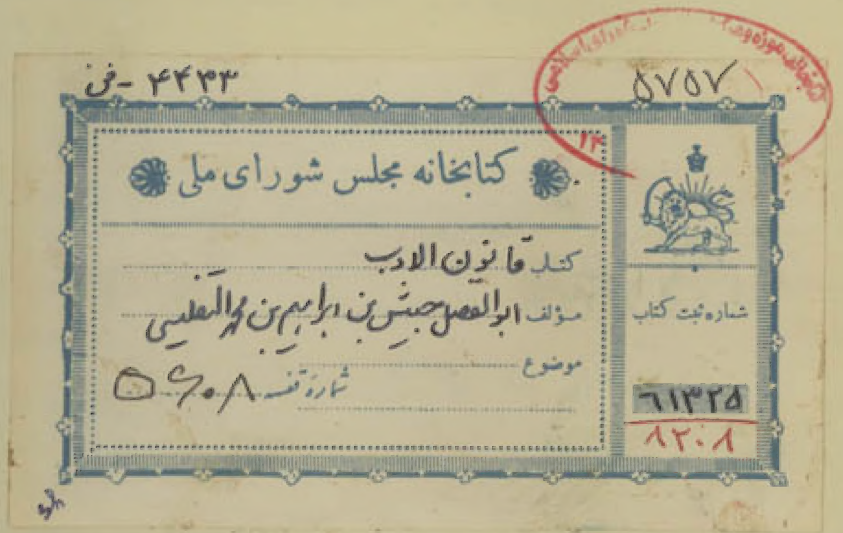 ۴۴۳۳ - فی
۵۷۵۷
۱۳
کتابخانه مجلس شورای ملی
کتاب قانون الادب
مؤلف ابوالفضل حبیش بن ابراهیم بن محمد التفلیسی
موضوع
شماره قفسه ۵۶۰۸
شماره ثبت کتاب
۶۱۳۲۵
۸۲۰۸